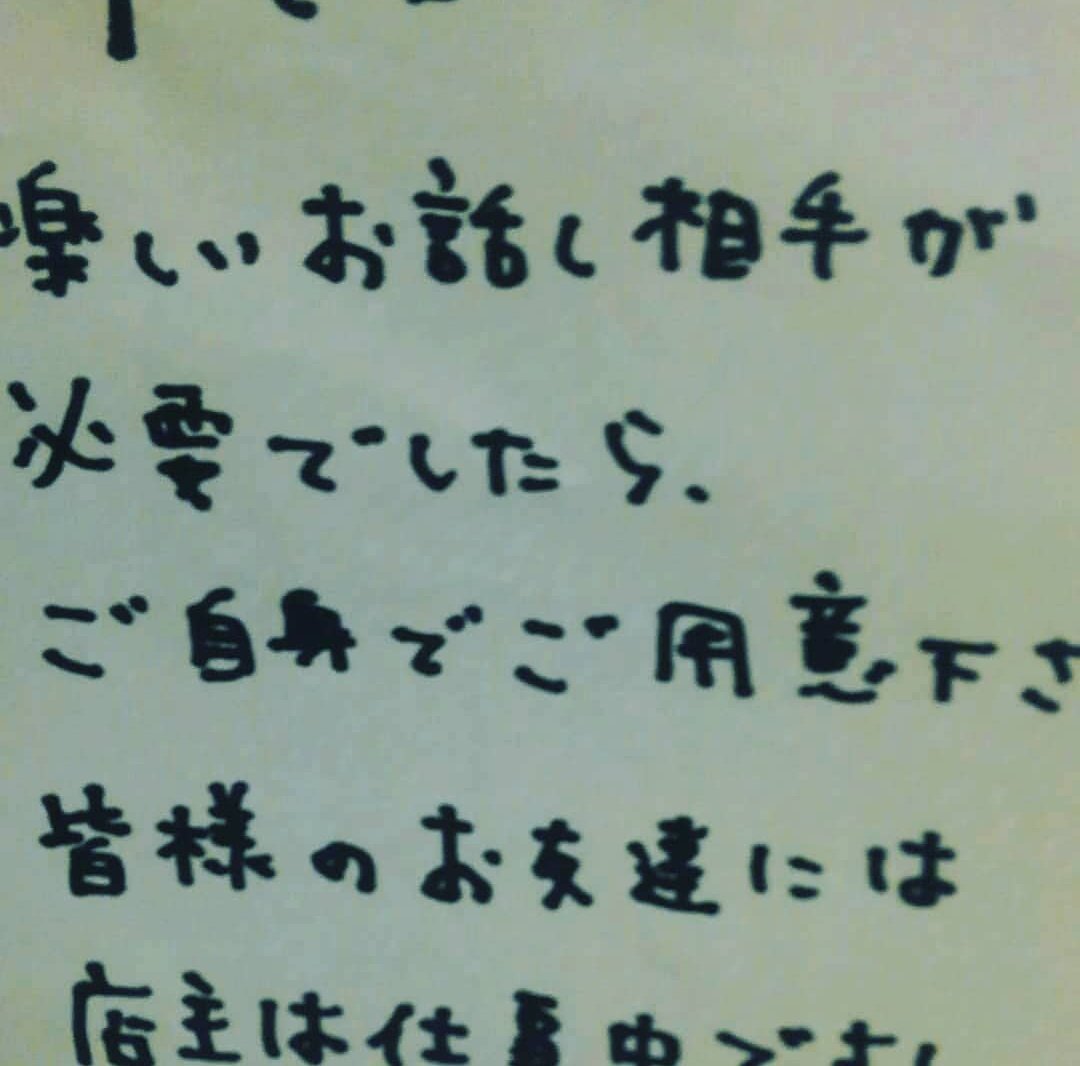 楽しいお話し相手が
必要でしたら、
ご自身でご用意下さ
皆様のお友達には
店主は仕事中です